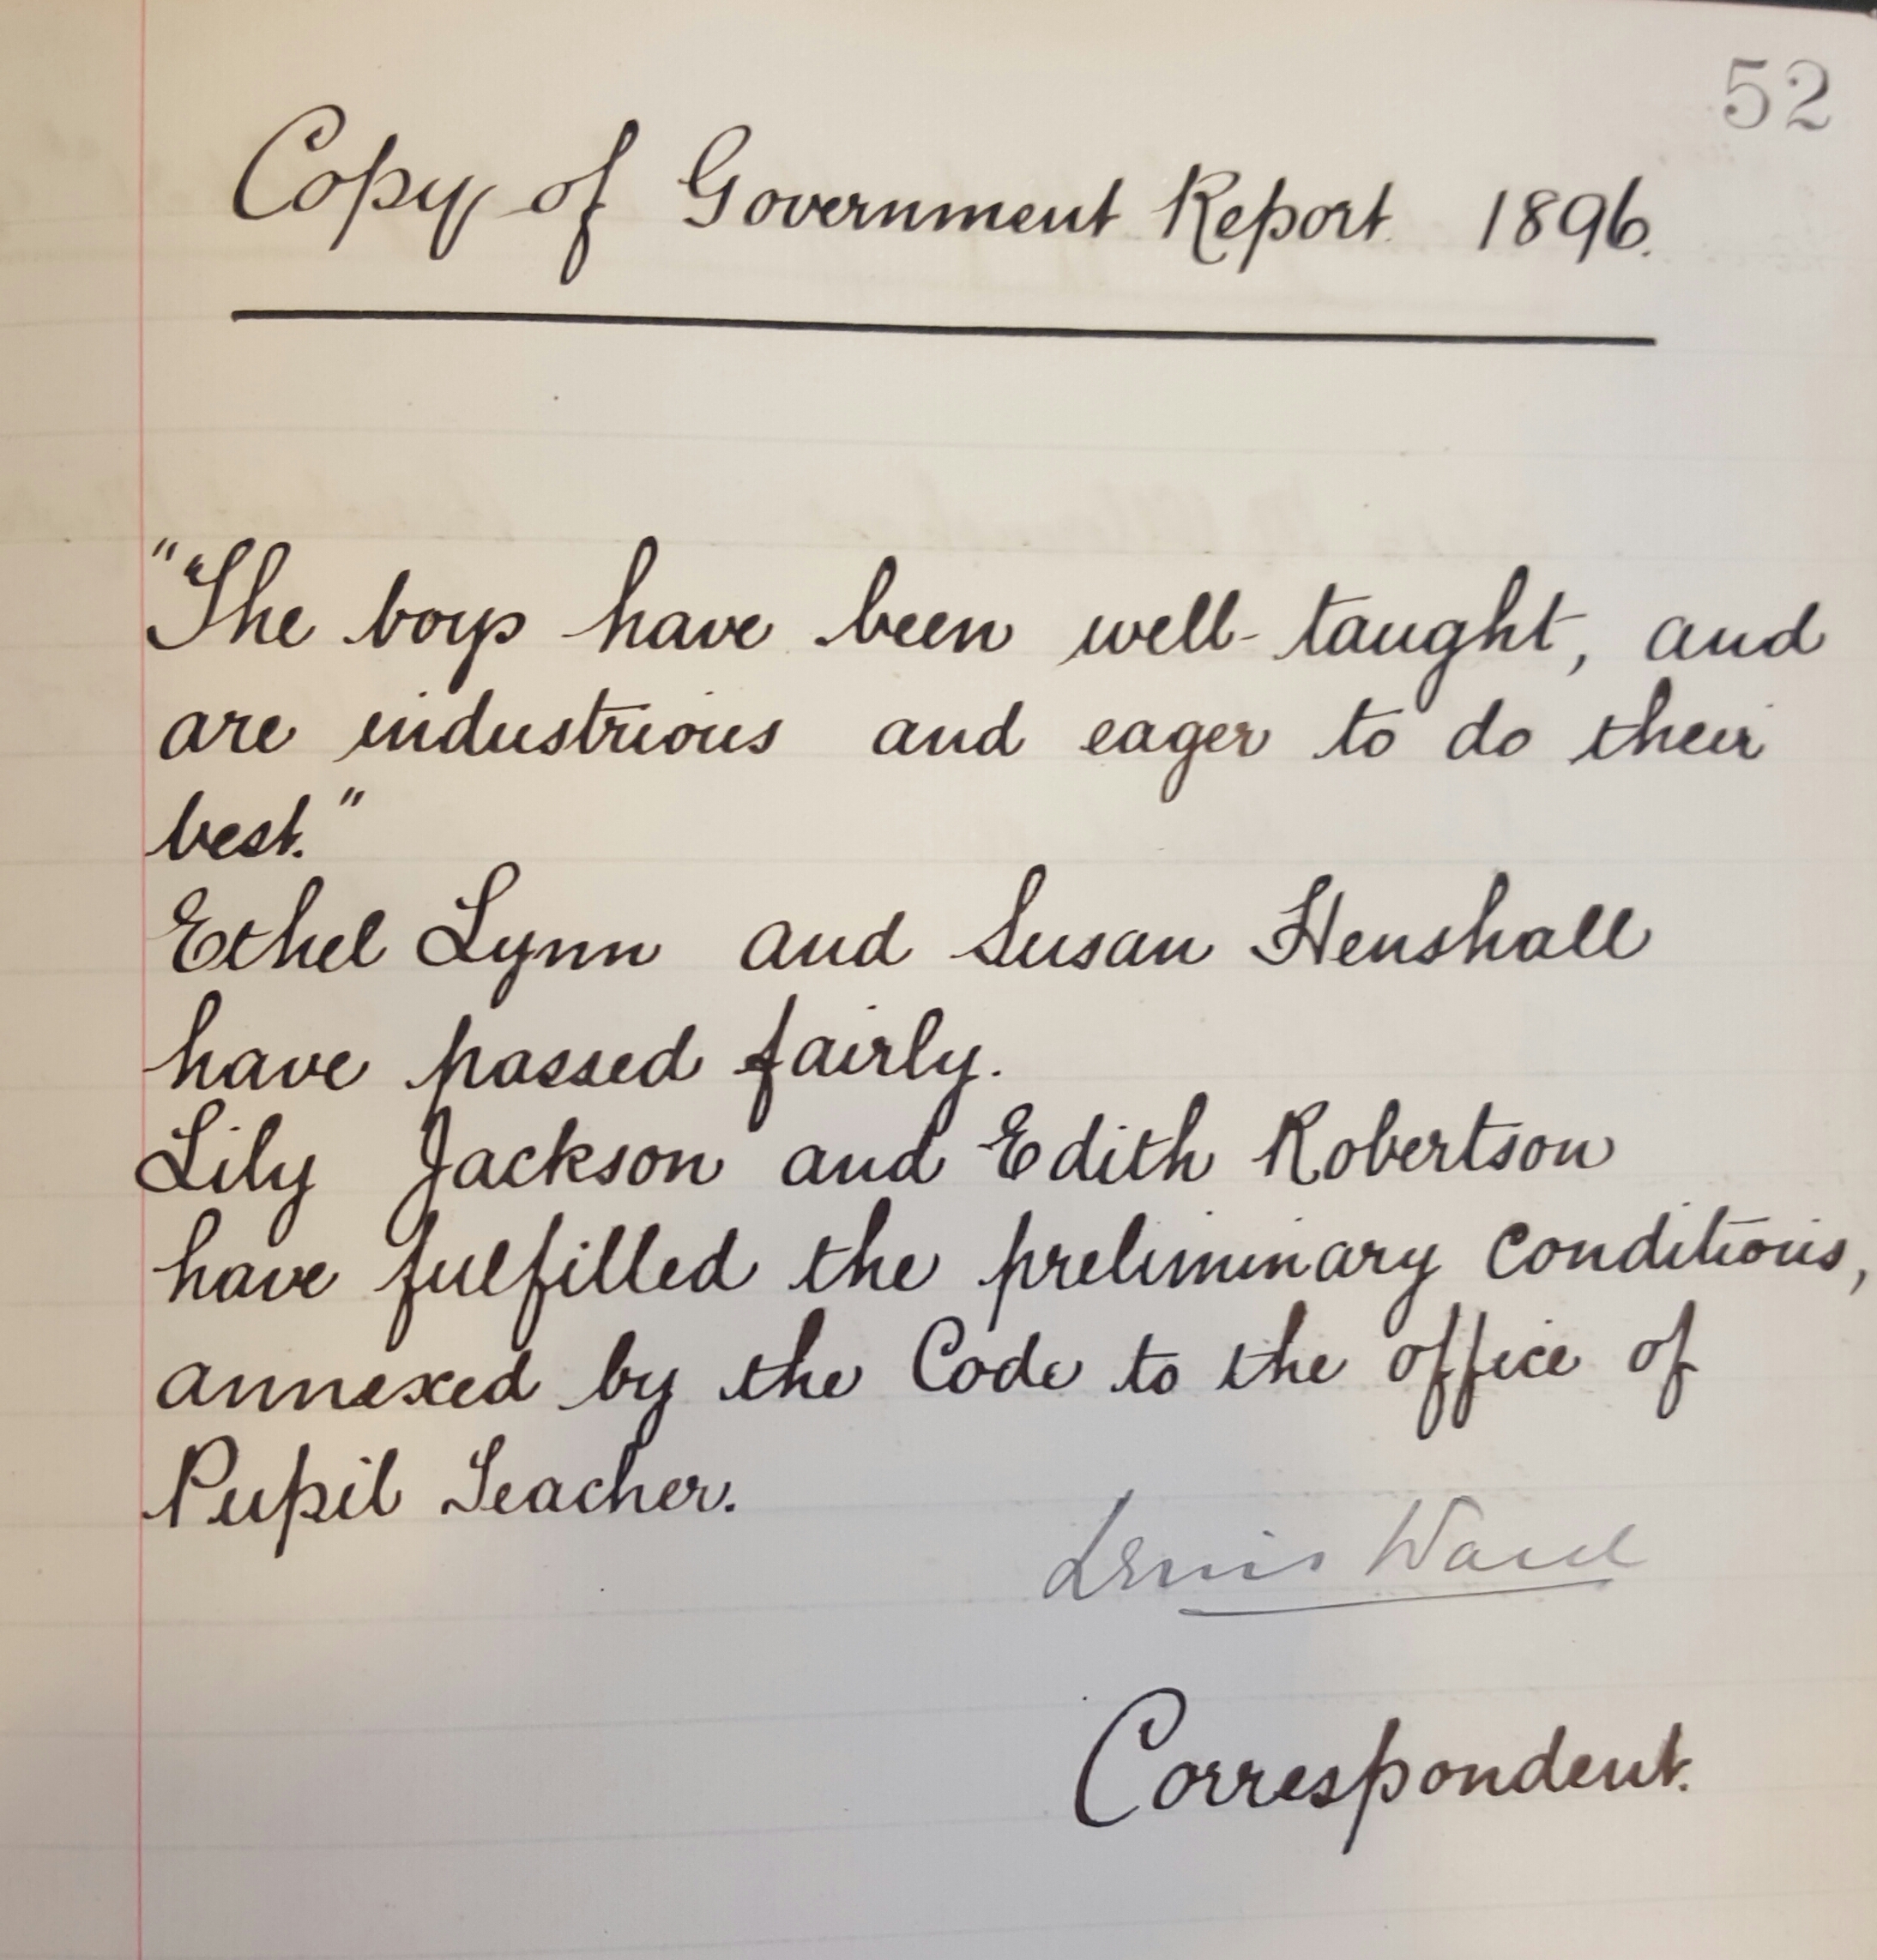 52
Copy of Government Report. 1896.
"The boys have been well-taught, and
are industrious and eager to do their
best."
Ethel Lynn and Susan Henshall
have passed fairly.
Lily Jackson and Edith Robertson
have fulfilled the preliminary conditions,
annexed by the Code to the office of
Pupil Teacher.
Ward
Correspondent.